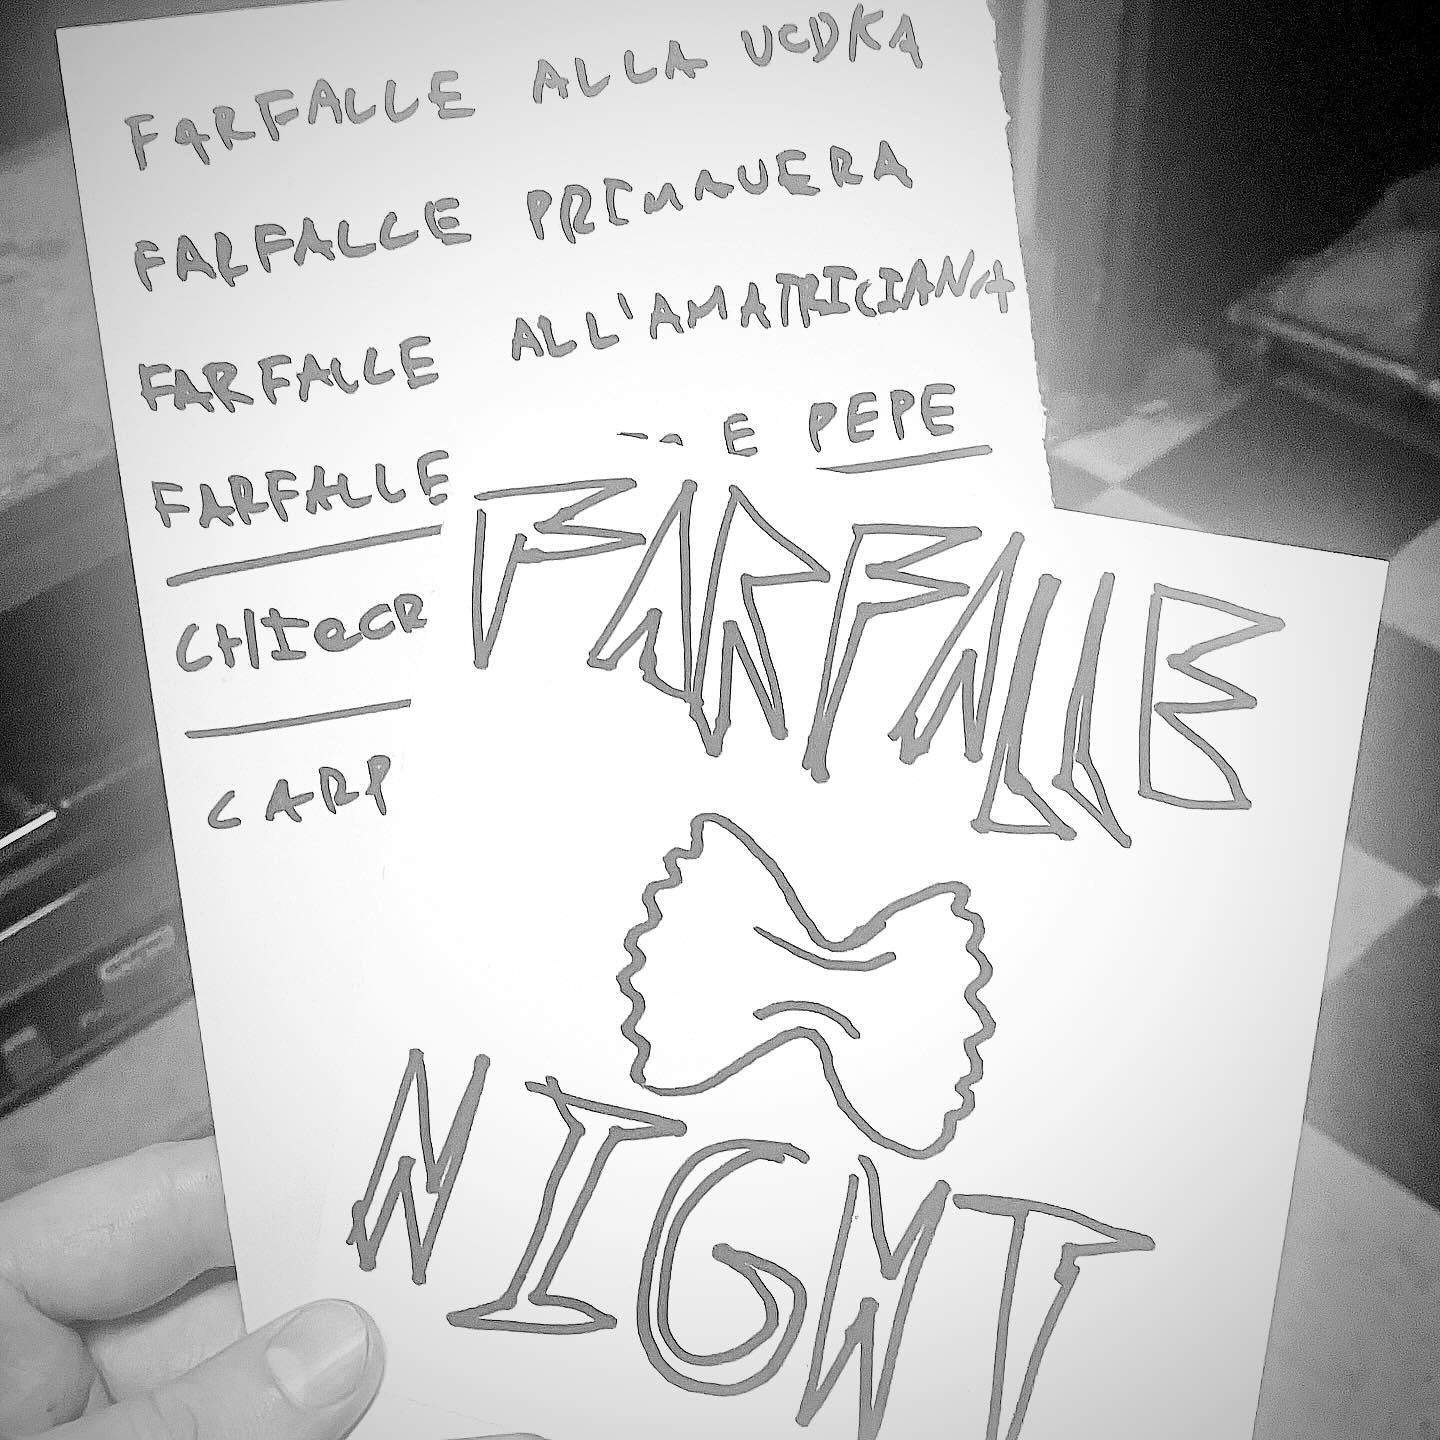 FARFALLE ALLA VODKA
FARFALLE PRIMAVERA
FARFALLE ALL'AMATRICIANA
FARFALLE E PEPE
CARP
FARFALLE
NIGHT